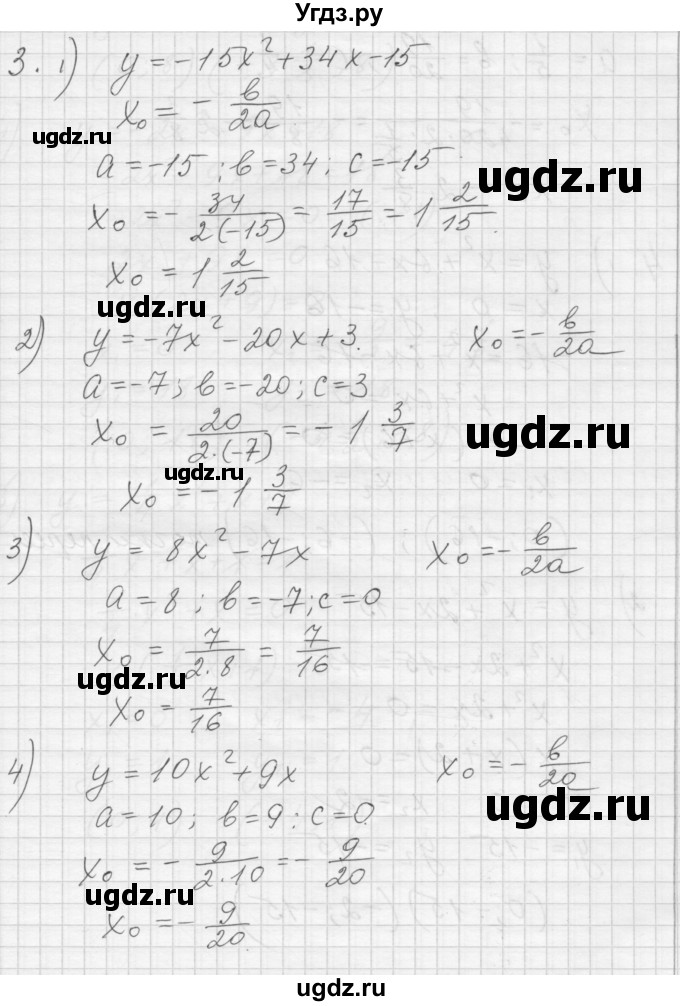 Угдз.ру
3. 1) y = -15x² + 34x - 15
x₀ = - в/2a
ugdz.ru
a = -15; в = 34; c = -15
ugdz.ru
x₀ = - 34/2(-15) = 17/15 = 1 2/15.
x₀ = 1 2/15
ugdz.ru
2) y = -7x² - 20x + 3. x₀ = - в/2a
a = -7; в = -20; c = 3
x₀ = 20/2·(-7) = - 1 3/7
ugdz.ru
ugdz.ru
x₀ = - 1 3/7
3) y = 8x² - 7x x₀ = - в/2a
a = 8; в = -7; c = 0
x₀ = 7/2·8 = 7/16
ugdz.ru
ugdz.ru
x₀ = 7/16
4) y = 10x² + 9x x₀ = - в/2a
ugdz.ru
a = 10; в = 9; c = 0.
x₀ = - 9/2·10 = - 9/20
ugdz.ru
x₀ = - 9/20.
ugdz.ru
ugdz.ru